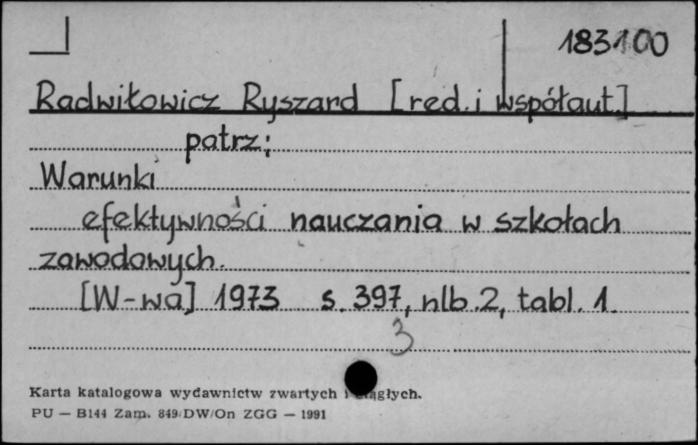 183100
Radwiłowicz Ryszard [red. i współaut.]
patrz:
Warunki
efektywności nauczania w szkołach
zawodowych.
[W-wa] 1973 s. 397, nlb. 2, tabl. 1.
3
Karta katalogowa wydawnictw zwartych i ciągłych.
PU — B144 Zam. 849/DW/On ZGG — 1991